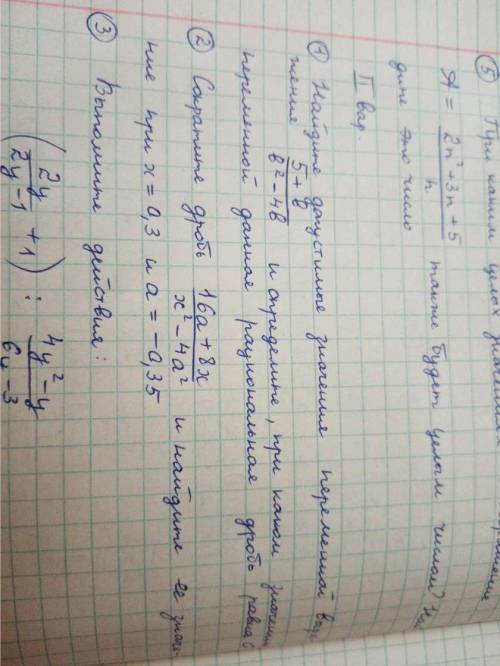 ⑤ При каким целых значениях
A = (2n² + 3n + 5)/n также будет целым числом? На
дите это число
II вар.
① Найдите допустимые значения переменной выра
жения (5 + в)/(в² - 4в) и определите, при каком значении
переменной данная рациональная дробь равна
② Сократите дробь (16a + 8x)/(x² - 4a²) и найдите её значе
ние при x = 0,3 и a = -0,35
③ Выполните действия:
(2y/(2y - 1) + 1) : (4y² - y)/(6y - 3)